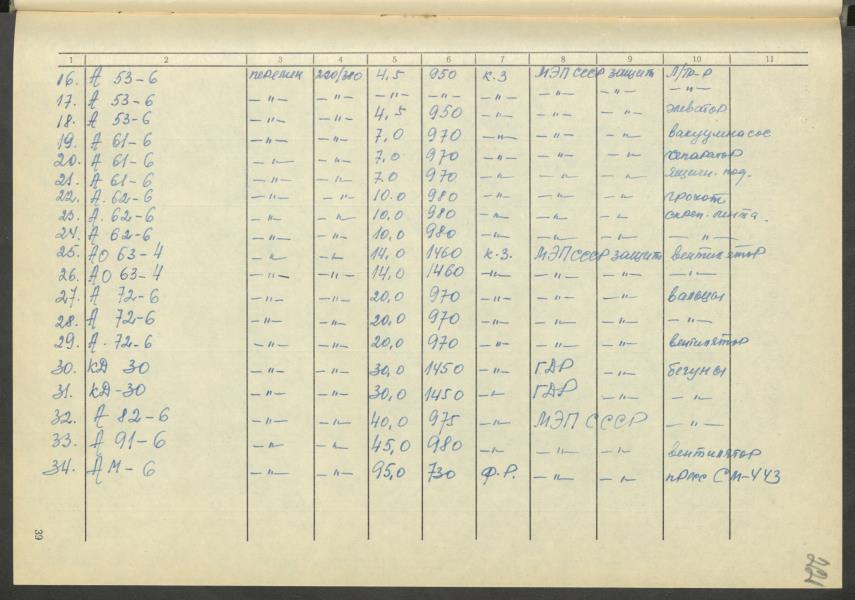 1 2 3 4 5 6 7 8 9 10 11
16. А 53-6 перемен 220/380 4,5 950 к.з МЭП СССР защит Л/тр-р
17. А 53-6 —"— —"— —"— —"— —"— —"— —"— —"—
18. А 53-6 —"— —"— 4,5 950 —"— —"— —"— элеватор
19. А 61-6 —"— —"— 7,0 970 —"— —"— —"— вакуумнасос
20. А 61-6 —"— —"— 7,0 970 —"— —"— —"— сепаратор
21. А 61-6 —"— —"— 7,0 970 —"— —"— —"— ящичн. под.
22. А. 62-6 —"— —"— 10.0 980 —"— —"— —"— грохот
23. А. 62-6 —"— —"— 10,0 980 —"— —"— —"— скреп. лента.
24. А 62-6 —"— —"— 10,0 980 —"— —"— —"— —"—
25. АО 63-4 —"— —"— 14,0 1460 к.з. МЭП СССР защит вентилятор
26. АО 63-4 —"— —"— 14,0 1460 —"— —"— —"— —"—
27. А 72-6 —"— —"— 20,0 970 —"— —"— —"— вальцы
28. А 72-6 —"— —"— 20,0 970 —"— —"— —"— —"—
29. А. 72-6 —"— —"— 20,0 970 —"— —"— —"— вентилятор
30. КД 30 —"— —"— 30,0 1450 —"— ГДР —"— бегуны
31. КД-30 —"— —"— 30,0 1450 —"— ГДР —"— —"—
32. А 82-6 —"— —"— 40,0 975 —"— МЭП СССР —"—
33. А 91-6 —"— —"— 45,0 980 —"— —"— —"— вентилятор
34. АМ-6 —"— —"— 95,0 730 Ф.Р. —"— —"— пресс СМ-443
39
22